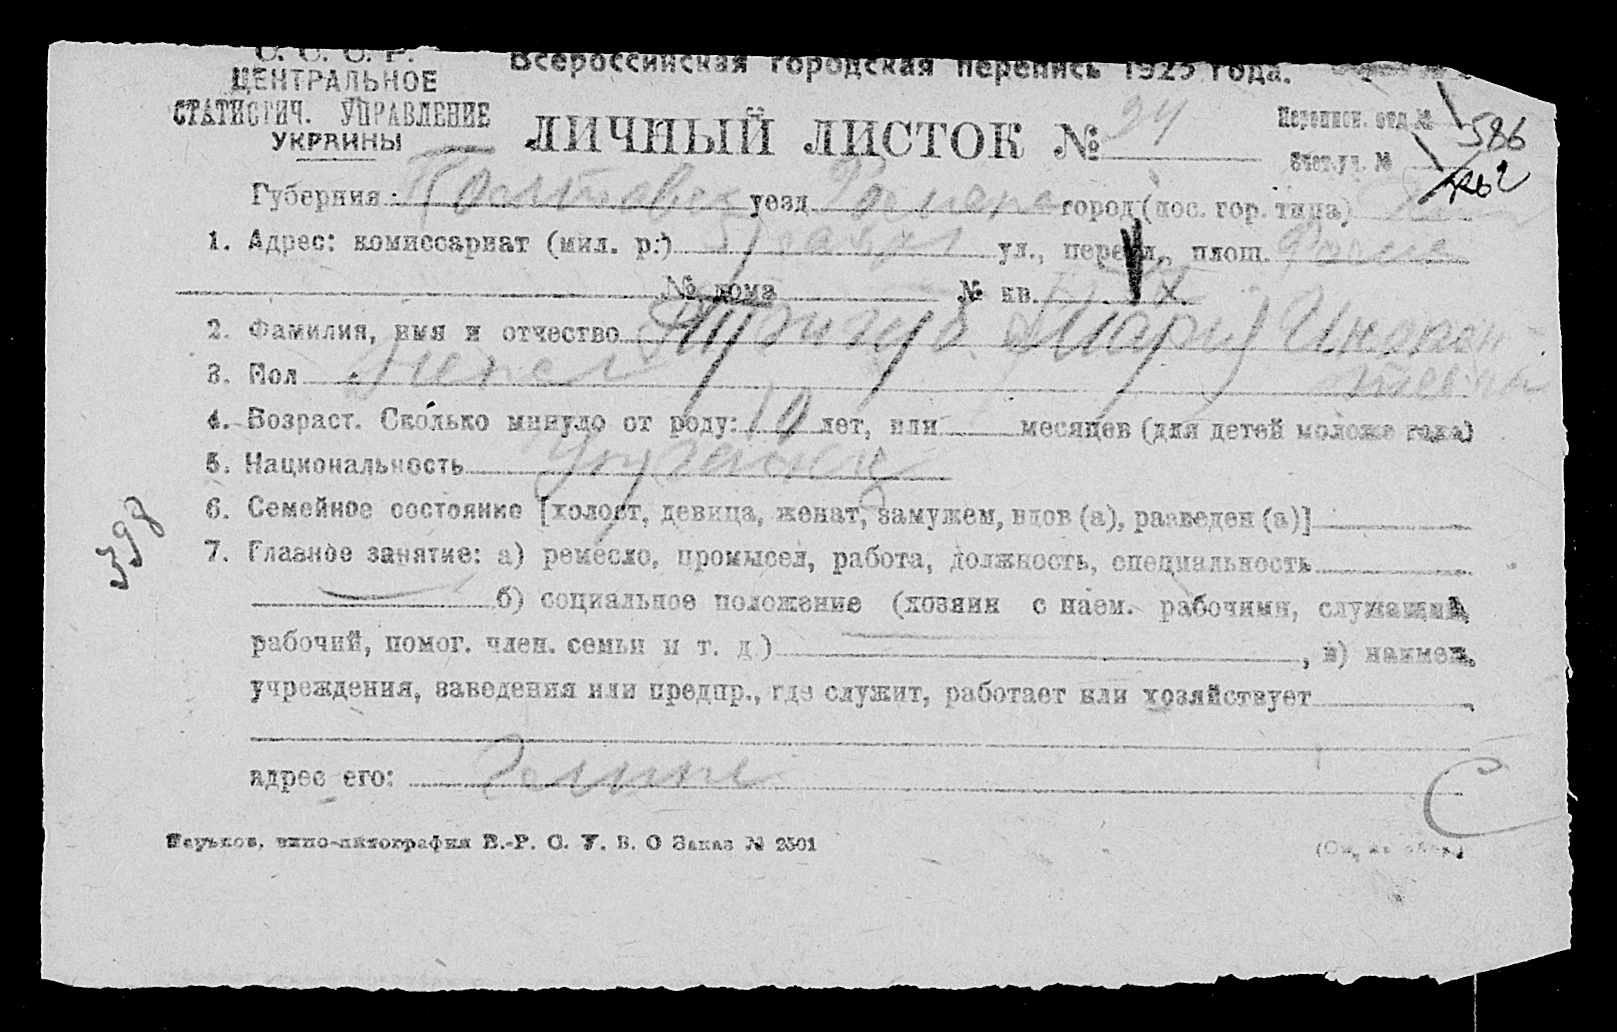 С. С. С. Р.
ЦЕНТРАЛЬНОЕ
СТАТИСТИЧ. УПРАВЛЕНИЕ
УКРАИНЫ
Всероссийская городская перепись 1923 года.
ЛИЧНЫЙ ЛИСТОК № 24
Переписн. отд. № 586
Счет. уч. №
Губерния: Полтавск уезд Ромены город (пос. гор. типа)
1. Адрес: комиссариат (мил. р.) ул., переул., площ.
№ дома № кв.
2. Фамилия, имя и отчество Тригуб Мария Инокен-
тевна
3. Пол женск
4. Возраст. Сколько минуло от роду: 10 лет, или месяцев (для детей моложе года)
5. Национальность украинка
6. Семейное состояние [холост, девица, женат, замужем, вдов (а), разведен (а)]
398
7. Главное занятие: а) ремесло, промысел, работа, должность, специальность
б) социальное положение (хозяин с наем. рабочими, служащий,
рабочий, помог. член. семьи и т. д.) , в) наимен.
учреждения, заведения или предпр., где служит, работает или хозяйствует ,
адрес его:
С
Заказ № 2501